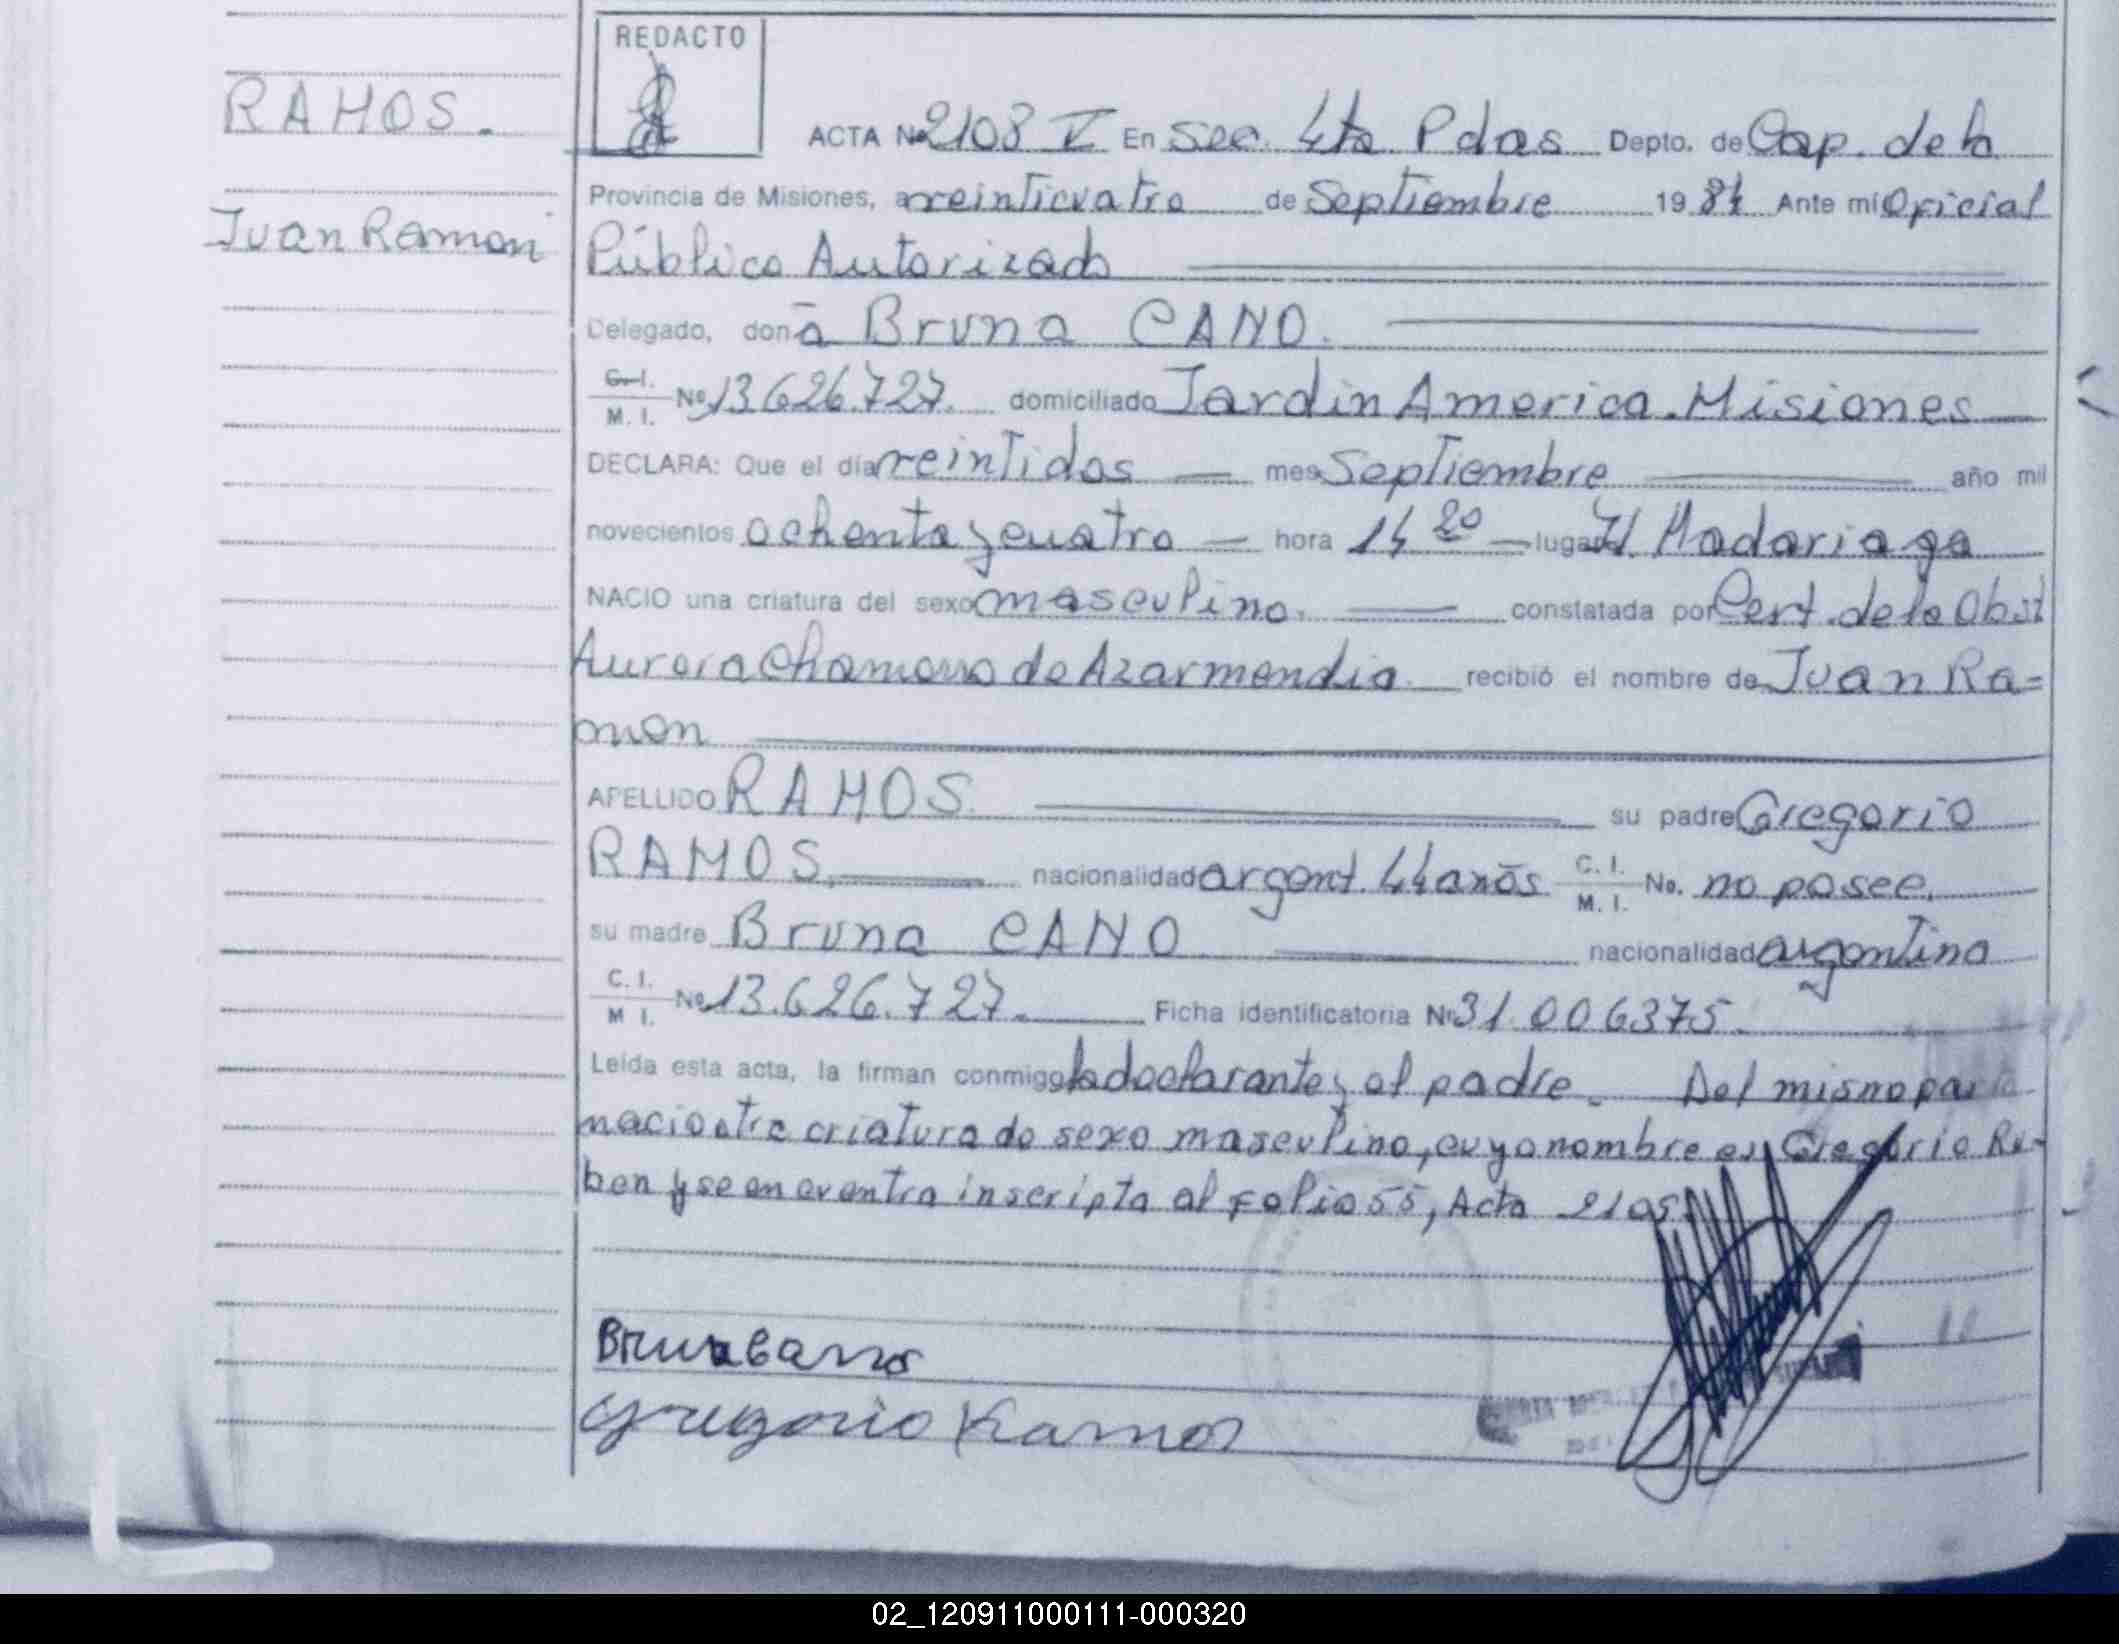 REDACTO
RAMOS.
ACTA Nº 2108 V En Sec. 4ta Pdas Depto. de Cap. de la
Juan Ramon
Provincia de Misiones, a veinticuatro de Septiembre 1984 Ante mí Oficial
Público Autorizado
Delegado, doña Bruna CANO.
C. I. M. I. Nº 13.626.727. domiciliado Jardin America. Misiones
DECLARA: Que el día veintidos mes Septiembre año mil
novecientos ochenta y cuatro hora 14 20 lugar H. Madariaga
NACIO una criatura del sexo masculino. constatada por Cert. de la Obst
Aurora de Azarmendia recibió el nombre de Juan Ra=
mon
APELLIDO RAMOS. su padre Gregorio
RAMOS. nacionalidad argent. 44 años C. I. M. I. No. no posee.
su madre Bruna CANO nacionalidad argentina
C. I. M I. Nº 13.626.727. Ficha identificatoria Nº 31.006375.
Leída esta acta, la firman conmigo la declarante y el padre. Del mismo parto
nacio otra criatura de sexo masculino, cuyo nombre es Gregorio Ru-
ben y se encuentra inscripta al Folio 55, Acta 2105
Bruna Cano
Gregorio Ramos
02_120911000111-000320